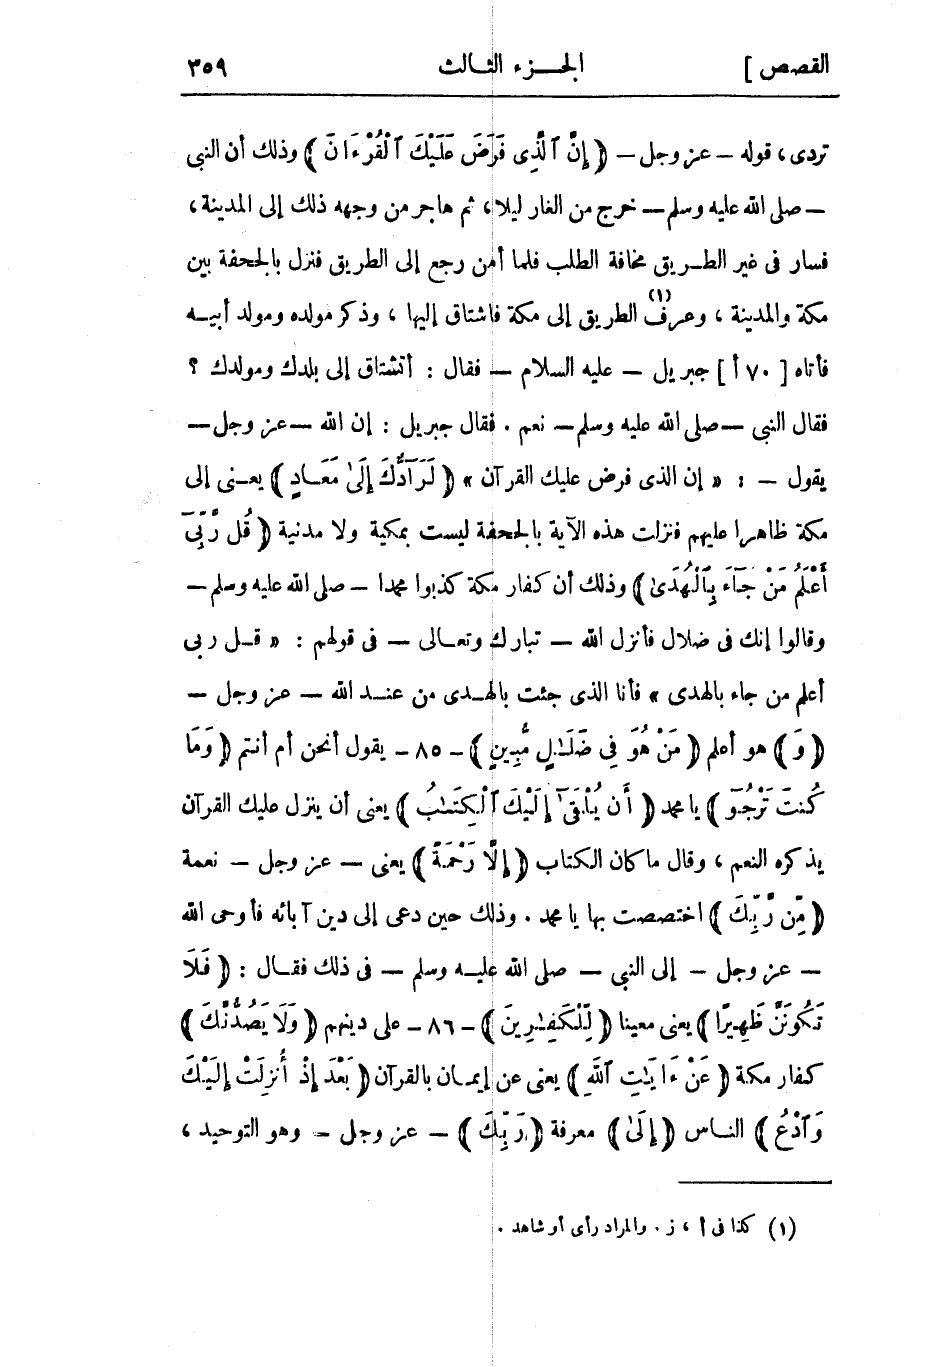 القصص ] الجـــزء الثـالث ٣٥٩
تردى، قوله – عز وجل – ﴿ إِنَّ ٱلَّذِى فَرَضَ عَلَيْكَ ٱلْقُرْءَانَ ﴾ وذلك أن النبى
– صلى الله عليه وسلم – خرج من الغار ليلا، ثم هاجر من وجهه ذلك إلى المدينة،
فسار فى غير الطـريق مخافة الطلب فلما أمن رجع إلى الطريق فنزل بالجحفة بين
مكة والمدينة ، وعرف (١) الطريق إلى مكة فاشتاق إليها ، وذكر مولده ومولد أبيـه
فأتاه [ ٧٠ أ ] جبريل – عليه السلام – فقال : أتشتاق إلى بلدك ومولدك ؟
فقال النبى – صلى الله عليه وسلم – نعم . فقال جبريل : إن الله – عز وجل –
يقول – : « إن الذى فرض عليك القرآن » ﴿ لَرَآدُّكَ إِلَىٰ مَعَـادٍ ﴾ يعـنى إلى
مكة ظاهرا عليهم فنزلت هذه الآية بالجحفة ليست بمكية ولا مدنية ﴿ قُل رَّبِّىٓ
أَعْلَمُ مَنْ جَآءَ بِٱلْهُدَىٰ ﴾ وذلك أن كفار مكة كذبوا محمدا – صلى الله عليه وسلم –
وقالوا إنك فى ضلال فأنزل الله – تبارك وتعـالى – فى قولهم : « قـل ربى
أعلم من جاء بالهدى » فأنا الذى جئت بالهـدى من عنـد الله – عز وجل –
﴿ وَ ﴾ هو أعلم ﴿ مَنْ هُوَ فِى ضَلَـٰلٍ مُّبِينٍ ﴾ – ٨٥ – يقول أنحن أم أنتم ﴿ وَمَا
كُنتَ تَرْجُوٓ ﴾ يا محمد ﴿ أَن يُلْقَىٰٓ إِلَيْكَ ٱلْكِتَـٰبُ ﴾ يعنى أن ينزل عليك القرآن
يذكره النعم ، وقال ما كان الكتاب ﴿ إِلَّا رَحْمَةً ﴾ يعنى – عز وجل – نعمة
﴿ مِّن رَّبِّكَ ﴾ اختصصت بها يا محمد . وذلك حين دعى إلى دين آبائه فأوحى الله
– عز وجل – إلى النبى – صلى الله عليـه وسلم – فى ذلك فقـال : ﴿ فَلَا
تَكُونَنَّ ظَهِيرًا ﴾ يعنى معينا ﴿ لِّلْكَـٰفِرِينَ ﴾ – ٨٦ – على دينهم ﴿ وَلَا يَصُدُّنَّكَ ﴾
كفار مكة ﴿ عَنْ ءَايَـٰتِ ٱللَّهِ ﴾ يعنى عن إيمـان بالقرآن ﴿ بَعْدَ إِذْ أُنزِلَتْ إِلَيْكَ
وَٱدْعُ ﴾ النـاس ﴿ إِلَىٰ ﴾ معرفة ﴿ رَبِّكَ ﴾ – عز وجل – وهو التوحيد ،
(١) كذا فى أ ، ز . والمراد رأى أو شاهد .